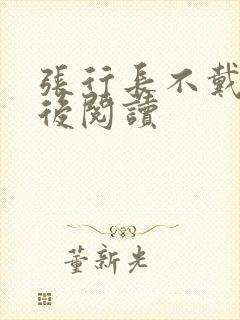 張行長不戴
後閱讀
董新光